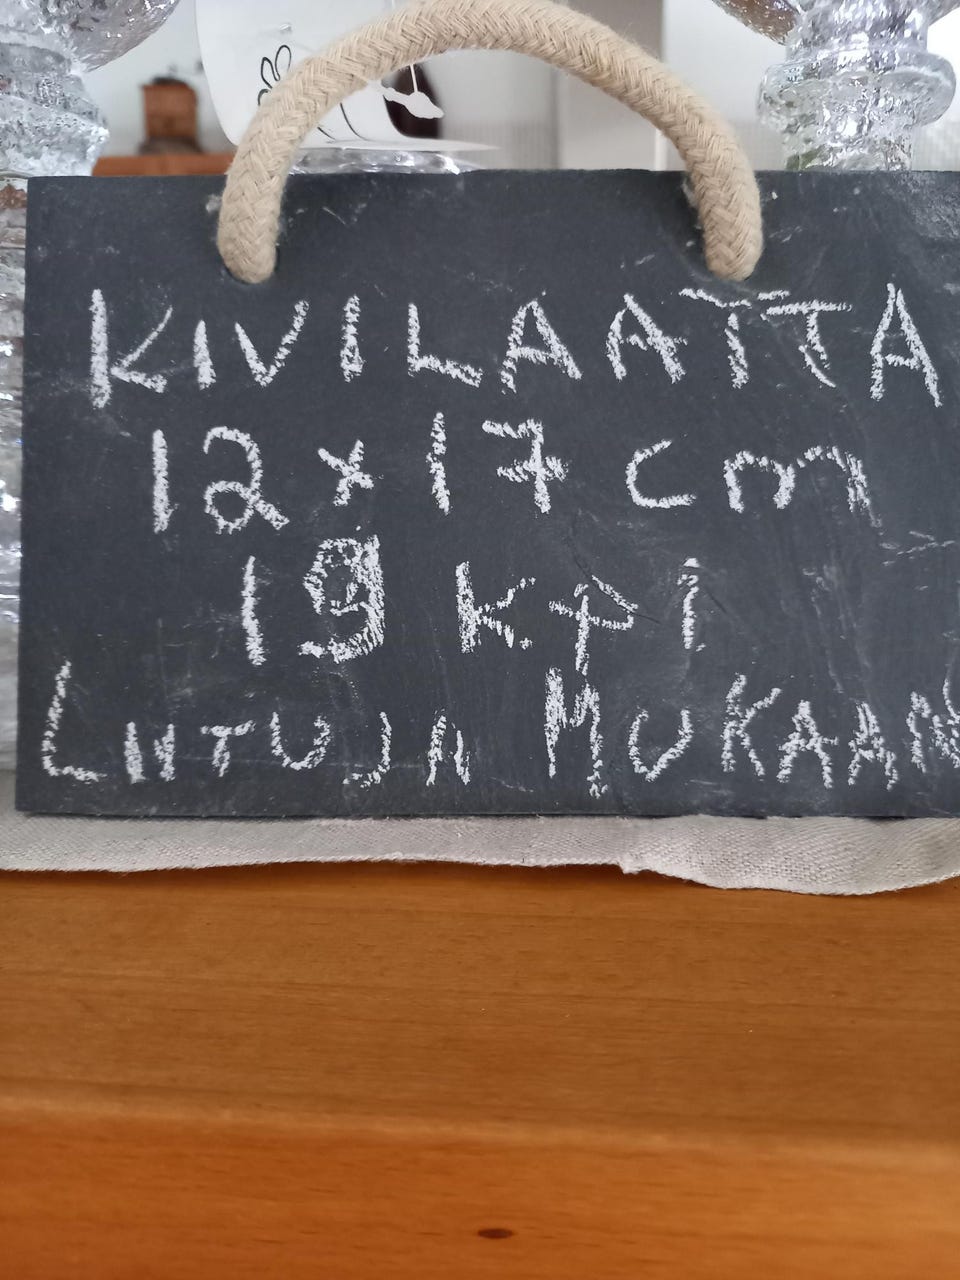 KIVILAATTA
12 x 17 cm
19 kpl
LIITUJA MUKAAN